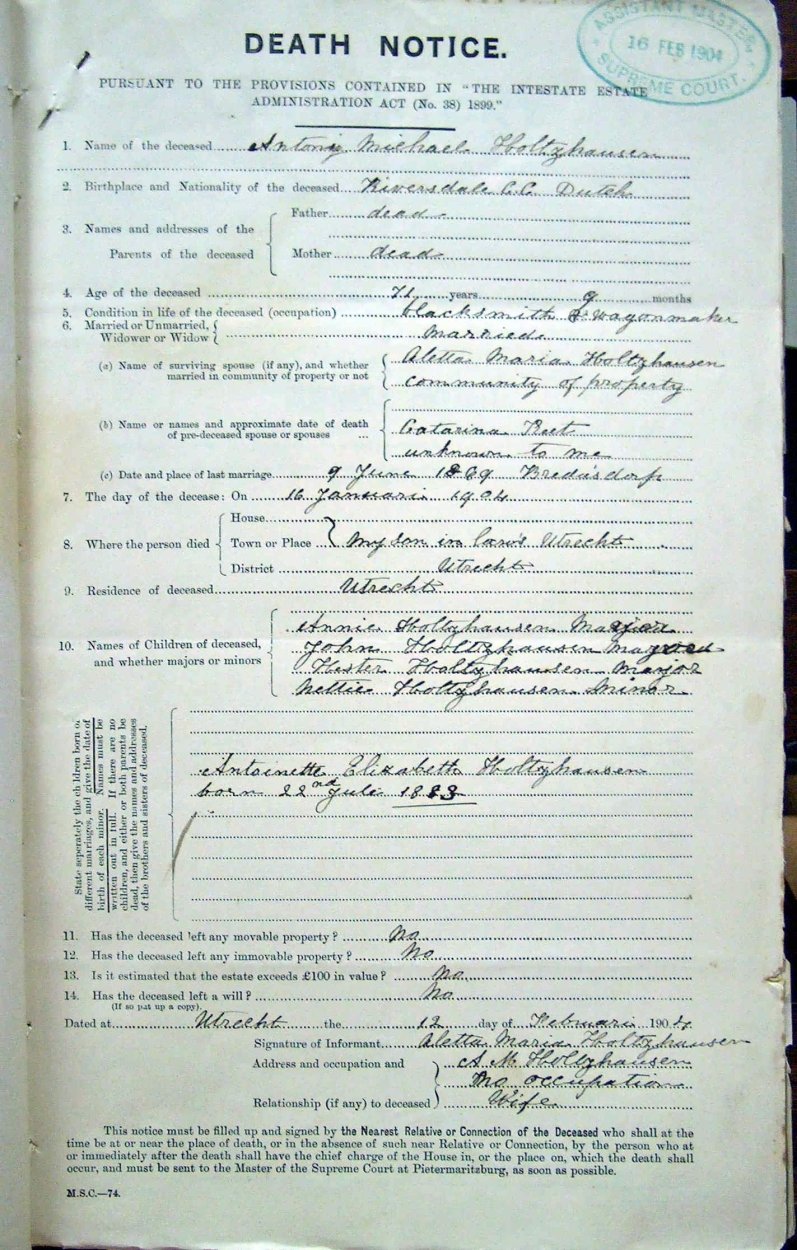 DEATH NOTICE.
ASSISTANT MASTER
16 FEB 1904
SUPREME COURT.
PURSUANT TO THE PROVISIONS CONTAINED IN "THE INTESTATE ESTATE
ADMINISTRATION ACT (No. 38) 1899."
1. Name of the deceased Antonij Michael Holtzhausen
2. Birthplace and Nationality of the deceased Riversdale C.C. Dutch
3. Names and addresses of the Parents of the deceased
Father dead
Mother dead
4. Age of the deceased 71 years 9 months
5. Condition in life of the deceased (occupation) blacksmith & wagonmaker
6. Married or Unmarried, Widower or Widow married
(a) Name of surviving spouse (if any), and whether Aletta Maria Holtzhausen
married in community of property or not community of property
(b) Name or names and approximate date of death Catarina
of pre-deceased spouse or spouses ... unknown to me
(c) Date and place of last marriage 9 June 1869 Bredasdorp
7. The day of the decease: On 16 Januari 1904
8. Where the person died
House
Town or Place my son in law's Utrecht
District Utrecht
9. Residence of deceased Utrecht
10. Names of Children of deceased, and whether majors or minors
Annie Holtzhausen Major
John Holtzhausen
Hester Holtzhausen Major
Nettie Holtzhausen Minor
State seperately the children born of
different marriages, and give the date of
birth of each minor. Names must be
written out in full. If there are no
children, and either or both parents be
dead, then give the names and addresses
of the brothers and sisters of deceased.
Antoinette Elizabeth Holtzhausen
born 22nd Juli 1883
11. Has the deceased left any movable property? No
12. Has the deceased left any immovable property? No
13. Is it estimated that the estate exceeds £100 in value? No
14. Has the deceased left a will? No
(If so put up a copy).
Dated at Utrecht the 12 day of Februari 1904
Signature of Informant Aletta Maria Holtzhausen
Address and occupation and A M Holtzhausen
no occupation
Relationship (if any) to deceased Wife
This notice must be filled up and signed by the Nearest Relative or Connection of the Deceased who shall at the
time be at or near the place of death, or in the absence of such near Relative or Connection, by the person who at
or immediately after the death shall have the chief charge of the House in, or the place on, which the death shall
occur, and must be sent to the Master of the Supreme Court at Pietermaritzburg, as soon as possible.
M.S.C.—74.